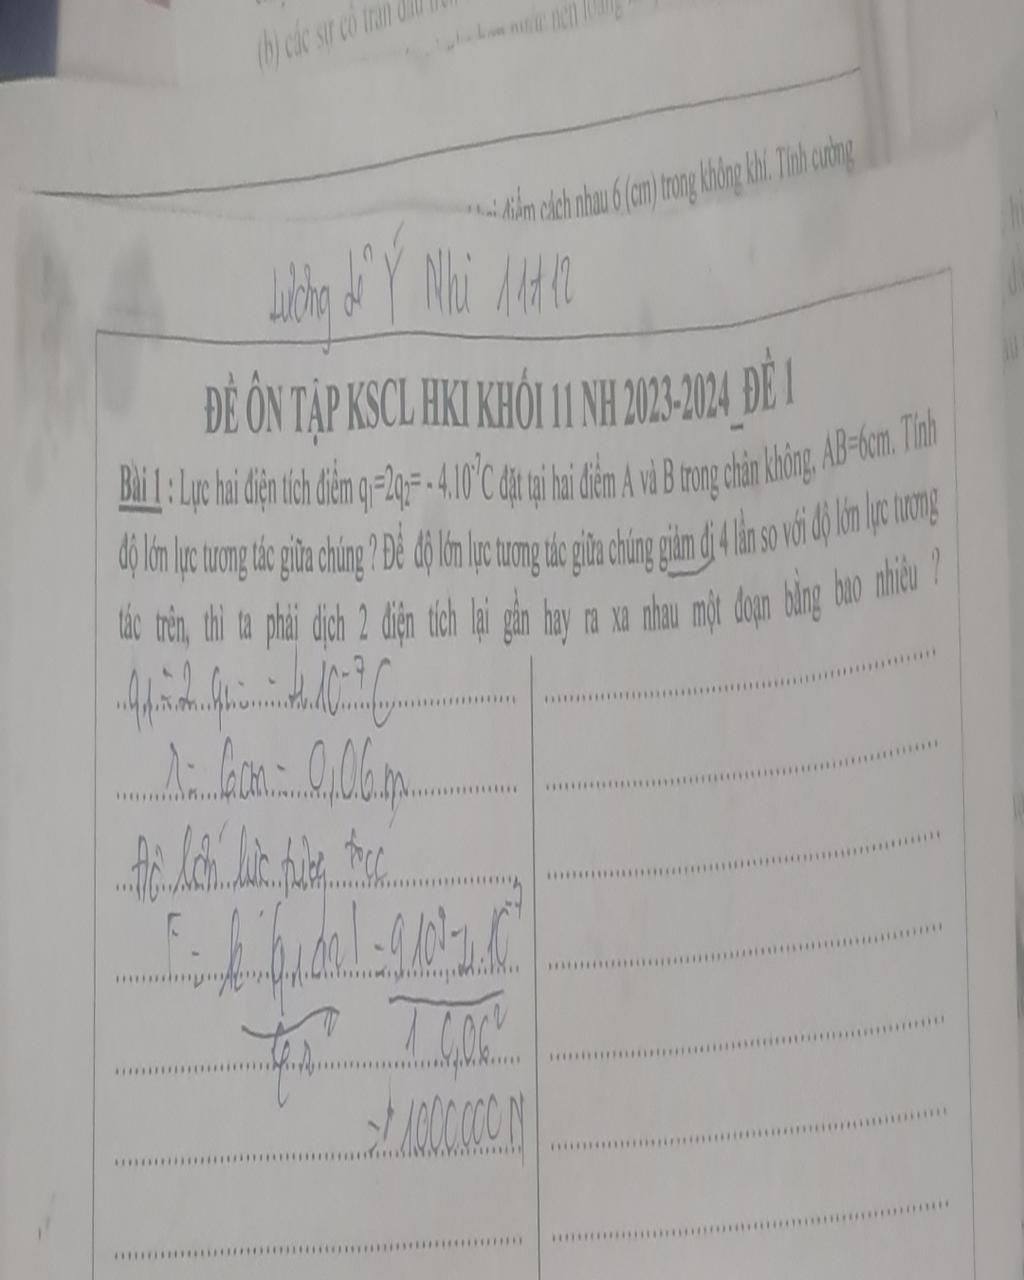 (b) các sự cố tràn dầu
nước nên
điểm cách nhau 6 (cm) trong không khí. Tính cường
Lương Lê Ý Nhi 11A12
ĐỀ ÔN TẬP KSCL HKI KHỐI 11 NH 2023-2024_ĐỀ 1
Bài 1 : Lực hai điện tích điểm q₁=2q₂= - 4.10⁻⁷C đặt tại hai điểm A và B trong chân không, AB=6cm. Tính
độ lớn lực tương tác giữa chúng ? Để độ lớn lực tương tác giữa chúng giảm đi 4 lần so với độ lớn lực tương
tác trên, thì ta phải dịch 2 điện tích lại gần hay ra xa nhau một đoạn bằng bao nhiêu ?
q₁ = 2 q₂ = - 4.10⁻⁷ C
r = 6cm = 0,06 m
Độ lớn lực tương tác
F = k |q₁.q₂| = 9.10⁹
r² 1 0,06²
1000.000 N